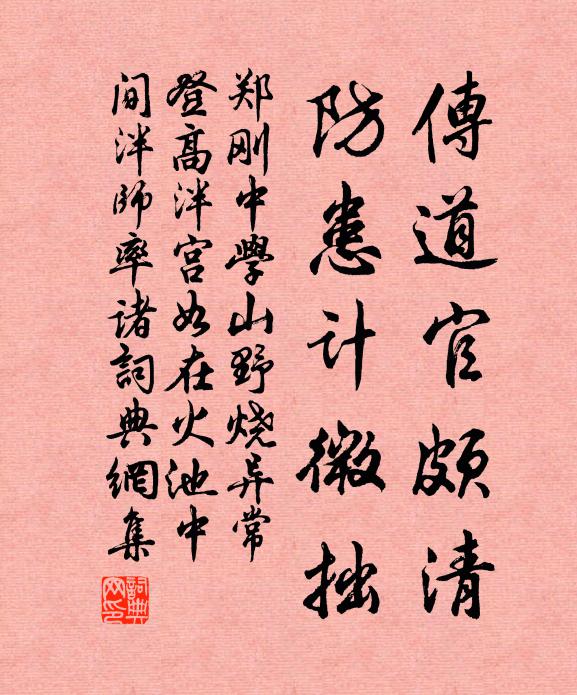 傳道官頗清
防患計微拙
郑刚中學山野烧异常
登高泮宫如在火池中
间泮师率诸詞典網集
詞典網印